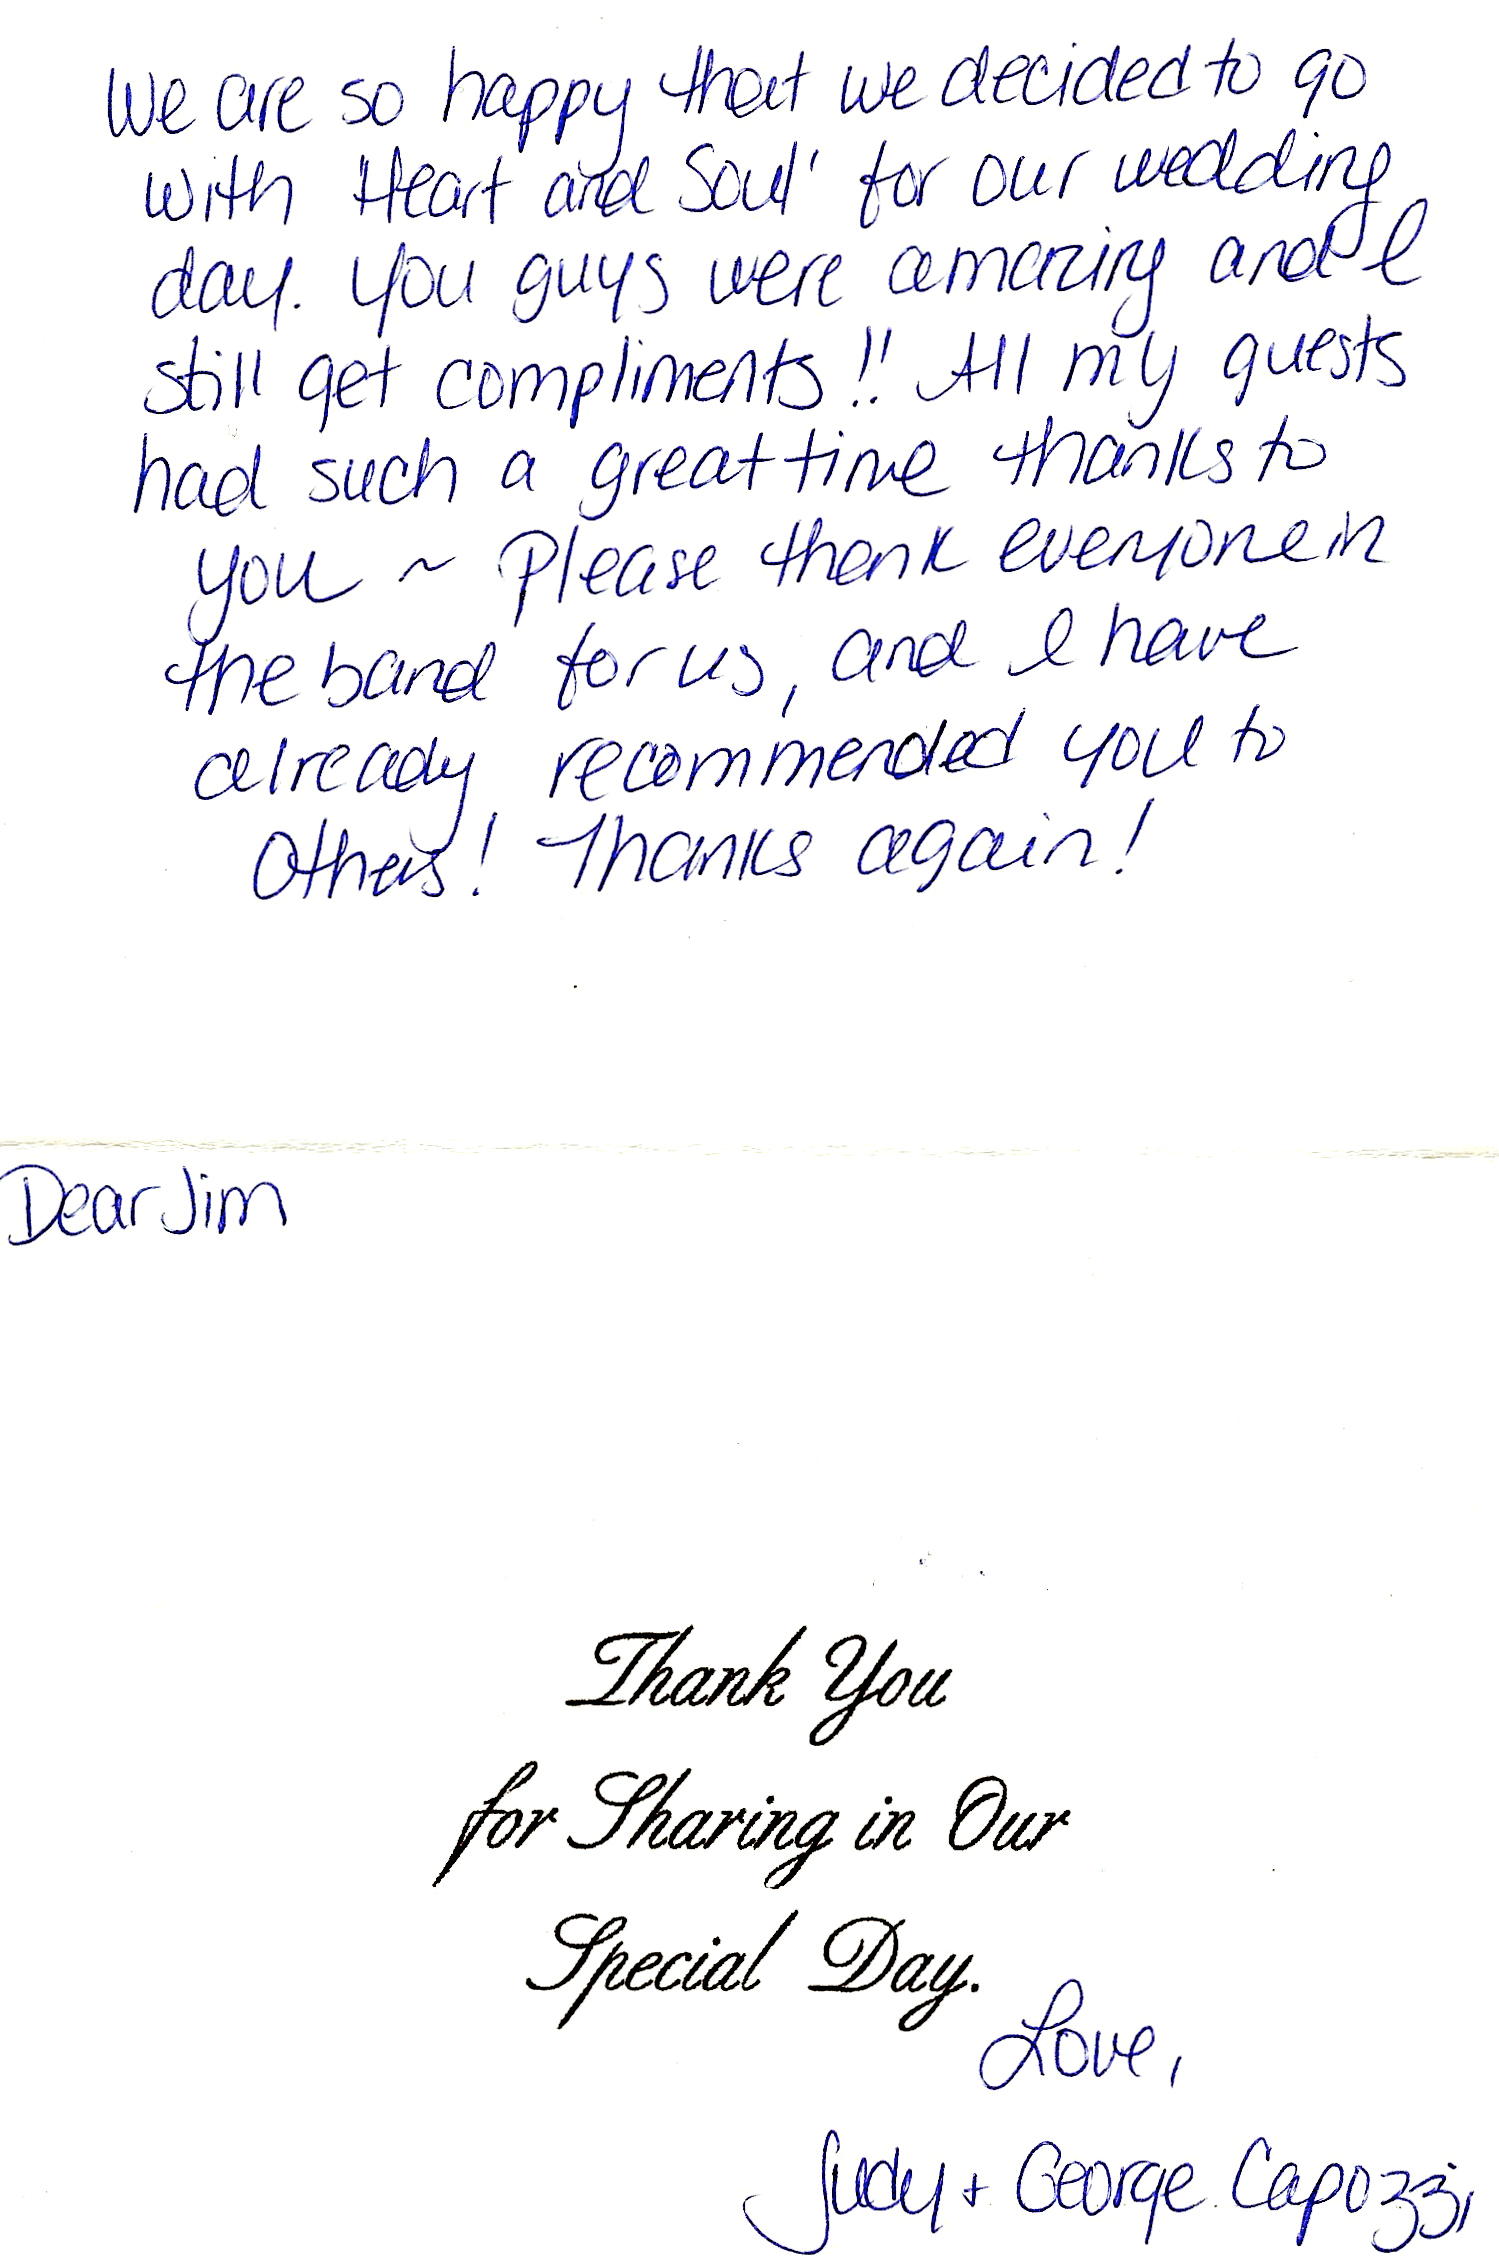 We are so happy that we decided to go
with 'Heart and Soul' for our wedding
day. You guys were amazing and I
still get compliments!! All my guests
had such a great time thanks to
you ~ Please thank everyone in
the band for us, and I have
already recommended you to
others! Thanks again!
Dear Jim
Thank You
for Sharing in Our
Special Day.
Love,
Judy + George Capozzi